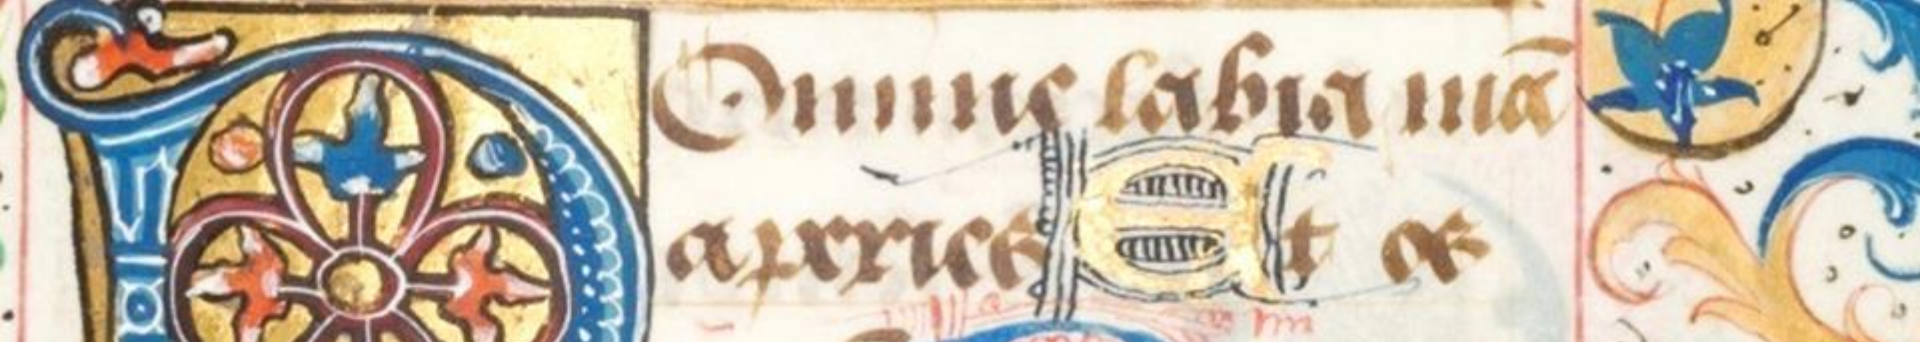 DOmine labia mea
aperies Et os